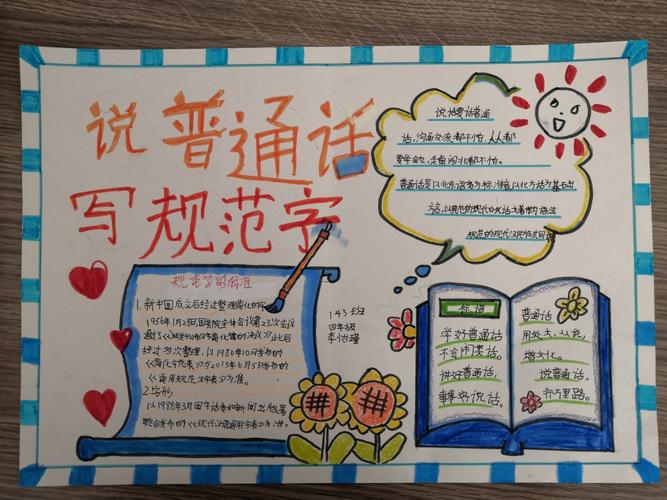 说普通话
写规范字
说话要话普通
话，沟通交流都不怕，人人都
要学会它，走南闯北都不怕。
普通话是以北京语音为标准音，以北方话为基础
方言，以典范的现代白话文著作为语法
规范的现代汉民族共同语
规范字的标准
1.新中国成立后经过整理简化的字
1956年1月28日国务院全体会议第23次会议
通过《汉字简化方案的决议》此后
经过多次整理，以1986年10月发布的
《简化字总表》与2013年6月5日发布的
《通用规范汉字表》为准。
2.字形
以1988年3月国家语委和新闻出版署
联合发布的《现代汉语通用字表》为准。
143班
四年级
李怡瑾
标语
学好普通话
不言闭塞话。
讲好普通话
事事好说话。
普通话
用处大，从我，
增文化。
说普通话，
行万里路。